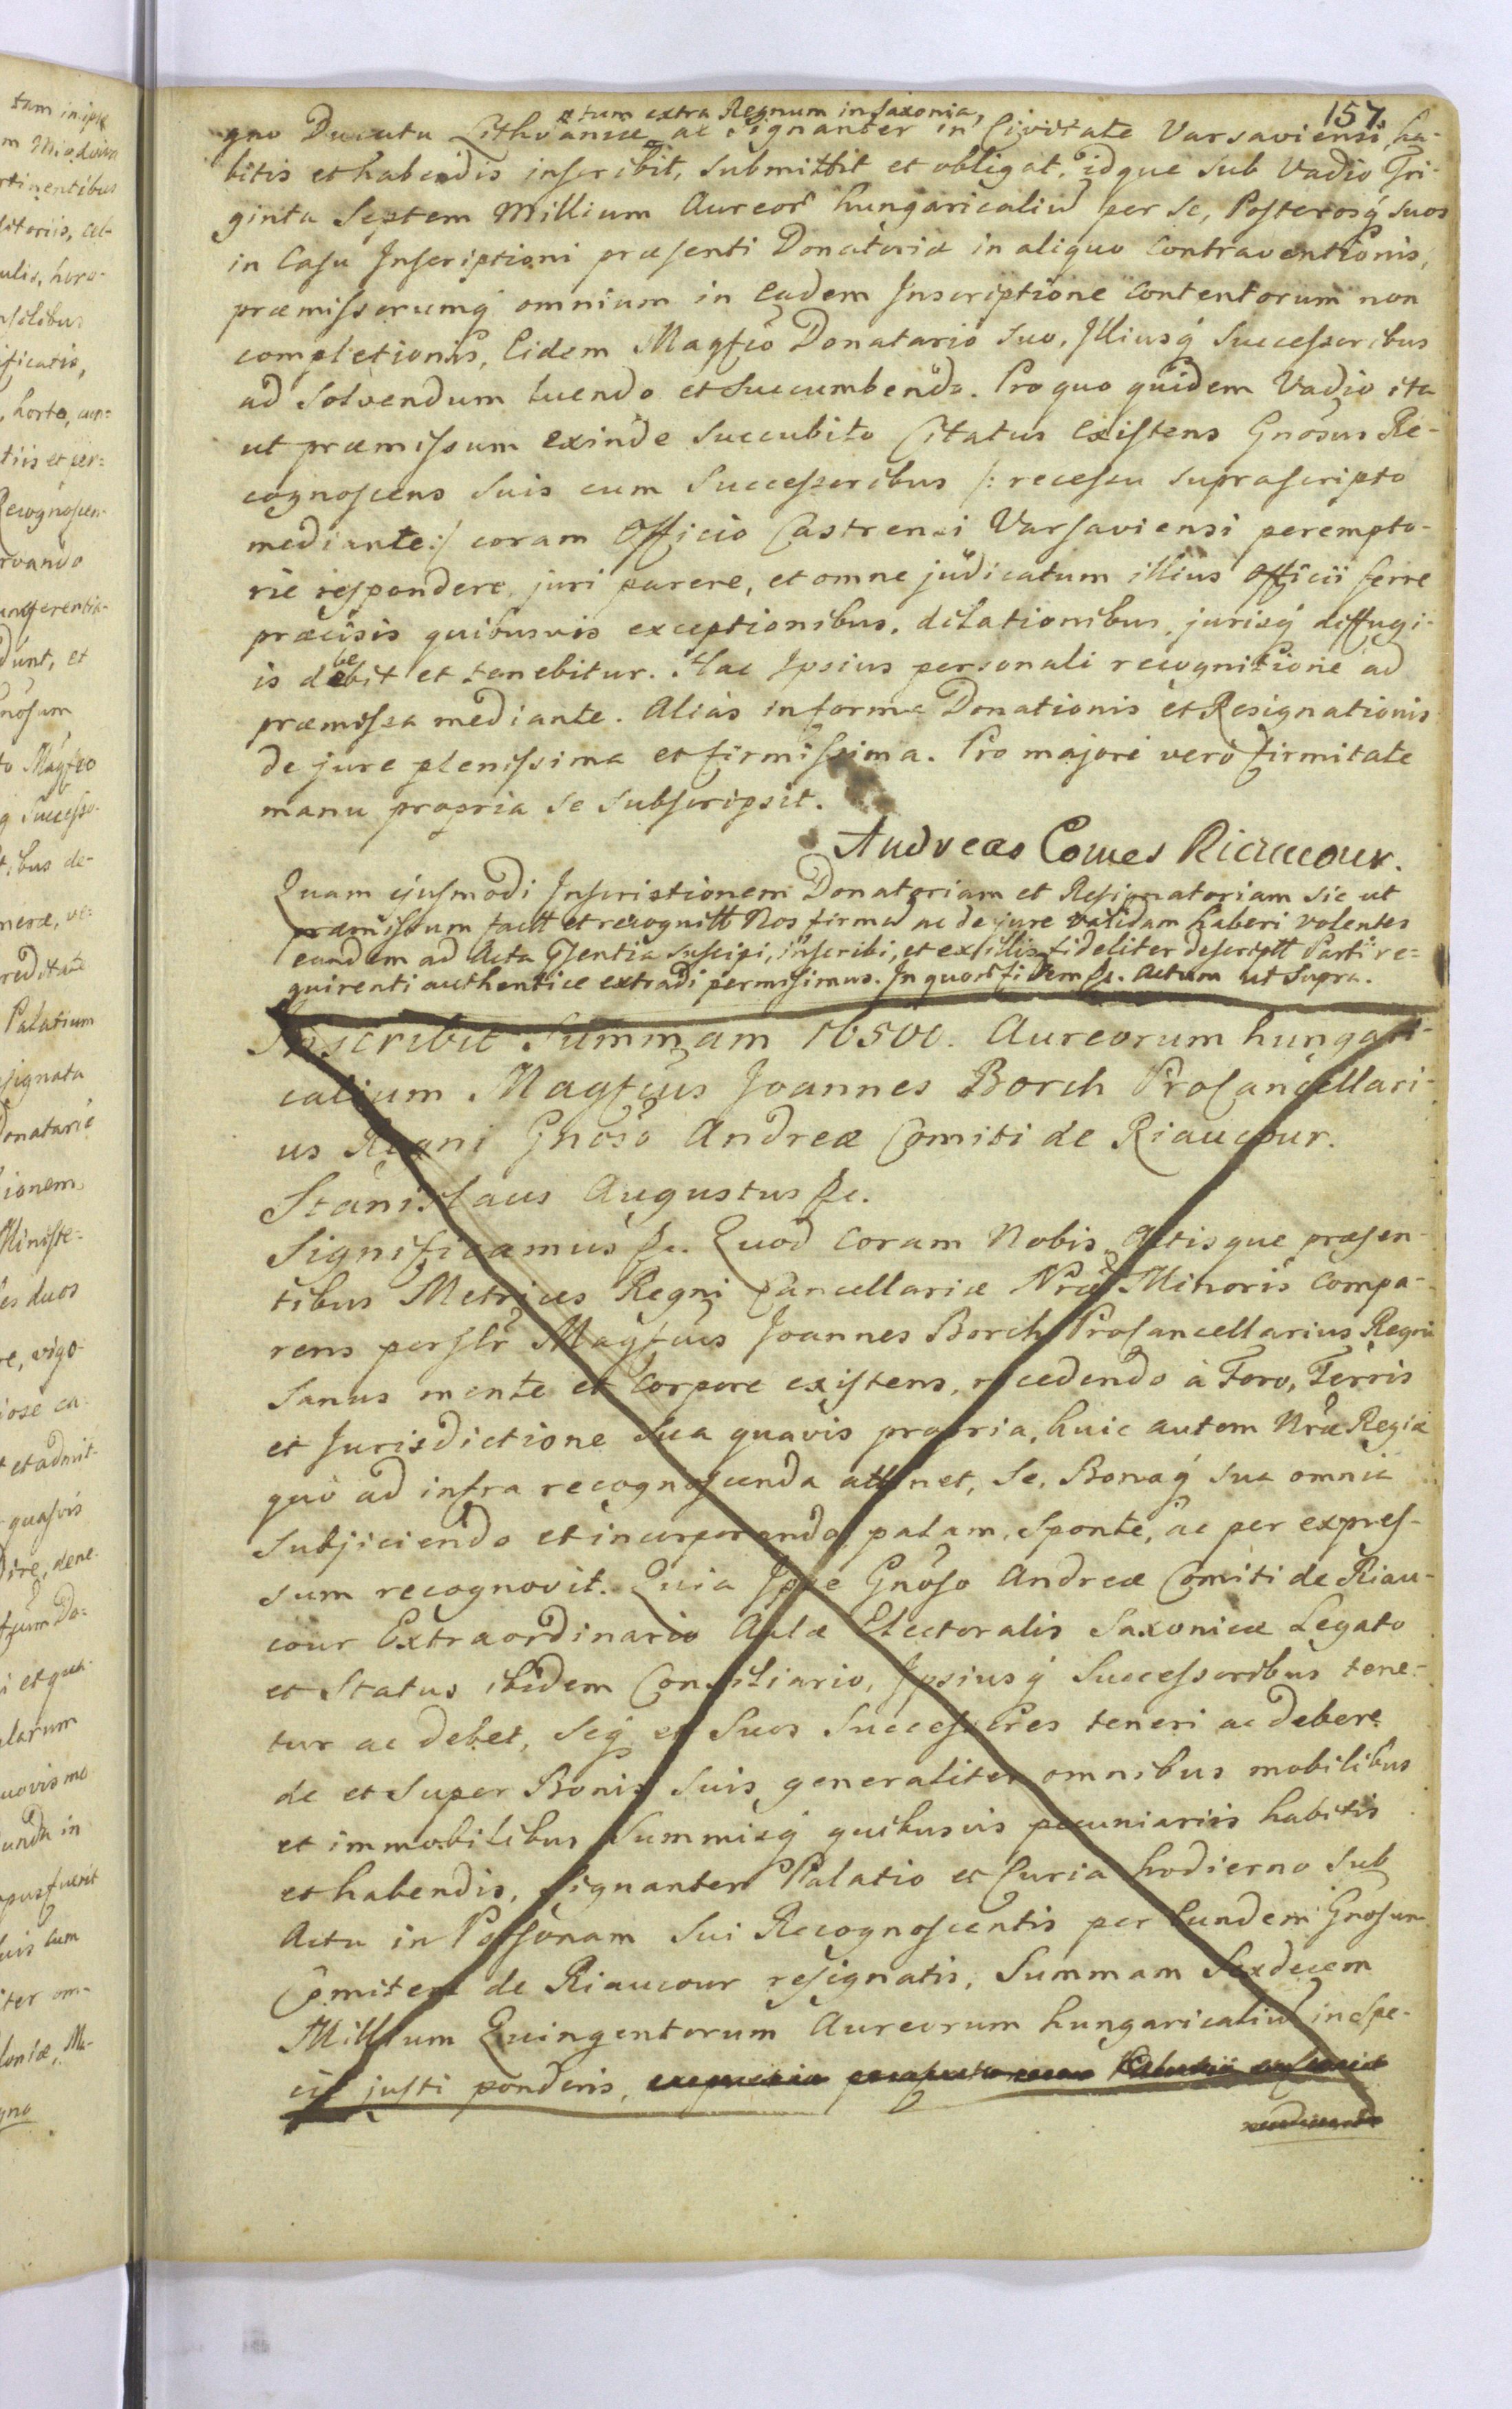 157.
etum extra Regnum in Saxonia,
gno Ducatu Lithvaniæ ac signanter in Civitate Varsaviensi, ha-
bitis et habendis inscribit, submittit et obligat, idque sub Vadio Tri-
ginta Septem Millium Aureor hungaricaliu per se, Posterosq suos
in Casu Inscriptioni præsenti Donatoriæ in aliquo Contraventionis,
præmissorumq omnium in Eadem Inscriptione Contentorum non
completionis, Eidem Magfco Donatario suo, Illiusq Successoribus
ad solvendum luendo et succumbendo. Pro quo quidem Vadio ita
ut præmissum exinde succubito Citatus Existens Gnosus Re-
cognoscens suis cum Successoribus /: recessu suprascripto
mediante :/ coram Officio Castrensi Varsaviensi perempto-
rie respondere, juri parere, et omne judicatum illius Officii ferre
præcisis quibusvis exceptionibus, dilationibus, jurisq diffugi-
is debebit et tenebitur. Hac Ipsius personali recognitione ad
præmissa mediante. Alias in forma Donationis et Resignationis
de jure plenissima et firmissima. Pro majore vero firmitate
manu propria se subscripsit.
Andreas Comes Riaucour.
Quam ejusmodi Inscriptionem Donatoriam et Resignatoriam sic ut
præmissum factt et recognitt Nos firmā ac de jure validam haberi volentes
eandem ad Acta Psentia suscipi, inscribi, et ex illis fideliter descriptt Parti re=
quirenti authentice extradi permisimus. In quor fidem &c. Actum ut supra.
Inscribit Summam 16500. Aureorum hungari-
calium Magfcus Joannes Borch ProCancellari-
us Regni Gnoso Andreæ Comiti de Riaucour.
Stanislaus Augustus &c.
Significamus &c. Quod Coram Nobis Actisque præsen-
tibus Metrices Regni Cancellariæ Nræ Minoris Compa-
rens perslr Magfcus Joannes Borch ProCancellarius Regni
Sanus mente et Corpore existens, recedendo à Foro, Terris
et Jurisdictione sua quavis propria, huic autem Nræ Regiæ
quo ad infra recognoscenda attinet, se, Bonaq sua omnia
subjiciendo et incorporando, palam, sponte, ac per expres-
sum recognovit. Quia Ipse Gnoso Andreæ Comiti de Riau-
cour Extraordinario Aulæ Electoralis Saxonicæ Legato
et Status ibidem Consiliario, Ipsiusq Successoribus tene-
tur ac debet, seq et suos Successores teneri ac debere
de et super Bonis suis generaliter omnibus mobilibus
et immobilibus Summisq quibusvis pecuniariis habitis
et habendis, signanter Palatio et Curia hodierno sub
Actu in Personam sui Recognoscentis per Eundem Gnosum
Comitem de Riaucour resignatis, Summam Sexdecem
Millium Quingentorum Aureorum hungaricaliu in spe-
cie justi ponderis,